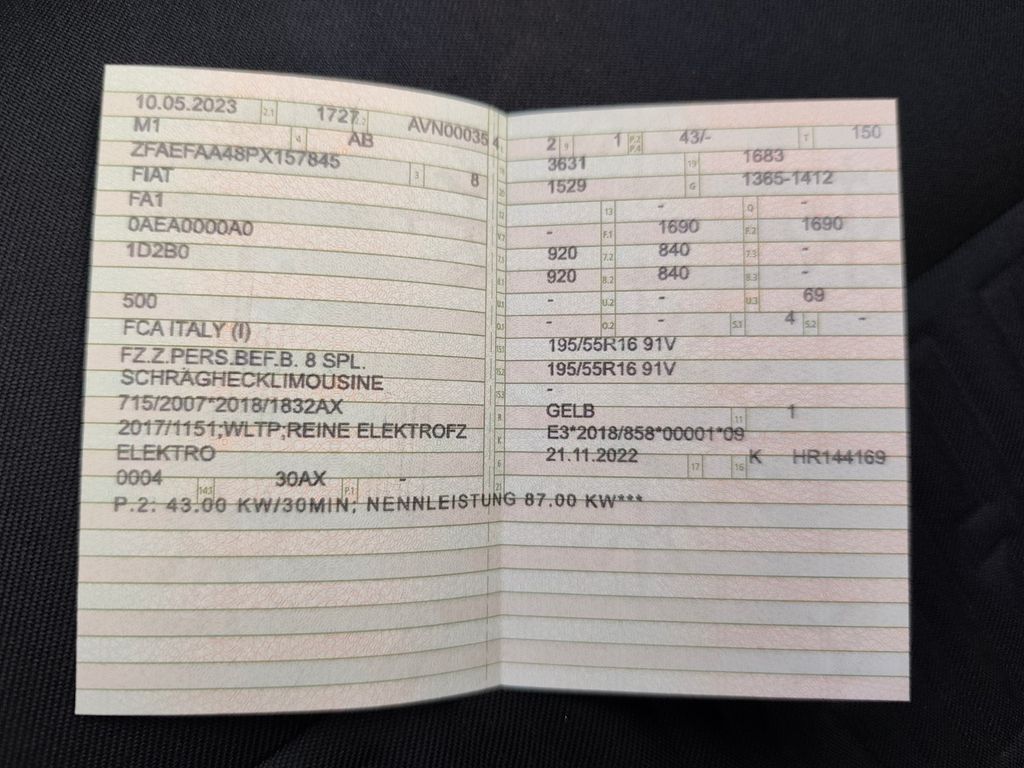 10.05.2023 2.1 1727 2.2 AVN00035 4
M1 4 AB
ZFAEFAA48PX157845 3 8
FIAT
FA1
0AEA0000A0
1D2B0
500
FCA ITALY (I)
FZ.Z.PERS.BEF.B. 8 SPL.
SCHRÄGHECKLIMOUSINE
715/2007*2018/1832AX
2017/1151;WLTP;REINE ELEKTROFZ
ELEKTRO
0004 14.1 30AX P.1 -
2 9 1 P.2 P.4 43/- T 150
18 3631 19 1683
20 1529 G 1365-1412
12 - 13 - Q -
V.7 - F.1 1690 F.2 1690
7.1 920 7.2 840 7.3 -
8.1 920 8.2 840 8.3 -
U.1 - U.2 - U.3 69
O.1 - O.2 - S.1 4 S.2 -
15.1 195/55R16 91V
15.2 195/55R16 91V
15.3 -
R GELB 11 1
K E3*2018/858*00001*09
6 21.11.2022 17 K 16 HR144169
21
P.2: 43.00 KW/30MIN; NENNLEISTUNG 87.00 KW***